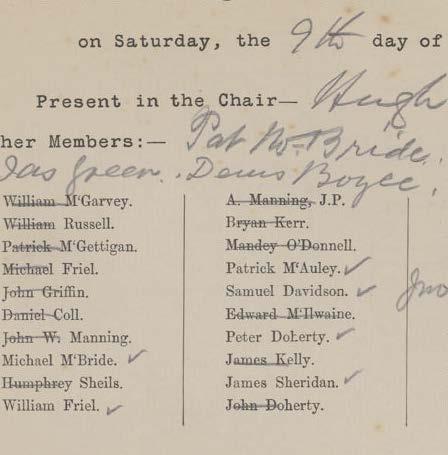 on Saturday, the 9th day of
Present in the Chair— Hugh
her Members:— Pat McBride,
Jas Green. Denis Boyce,
William M'Garvey.
William Russell.
Patrick M'Gettigan.
Michael Friel.
John Griffin.
Daniel Coll.
John W. Manning.
Michael M'Bride. ✓
Humphrey Sheils.
William Friel. ✓
A. Manning, J.P.
Bryan Kerr.
Mandey O'Donnell.
Patrick M'Auley. ✓
Samuel Davidson. ✓
Edward M'Ilwaine.
Peter Doherty. ✓
James Kelly.
James Sheridan. ✓
John Doherty.
Jno